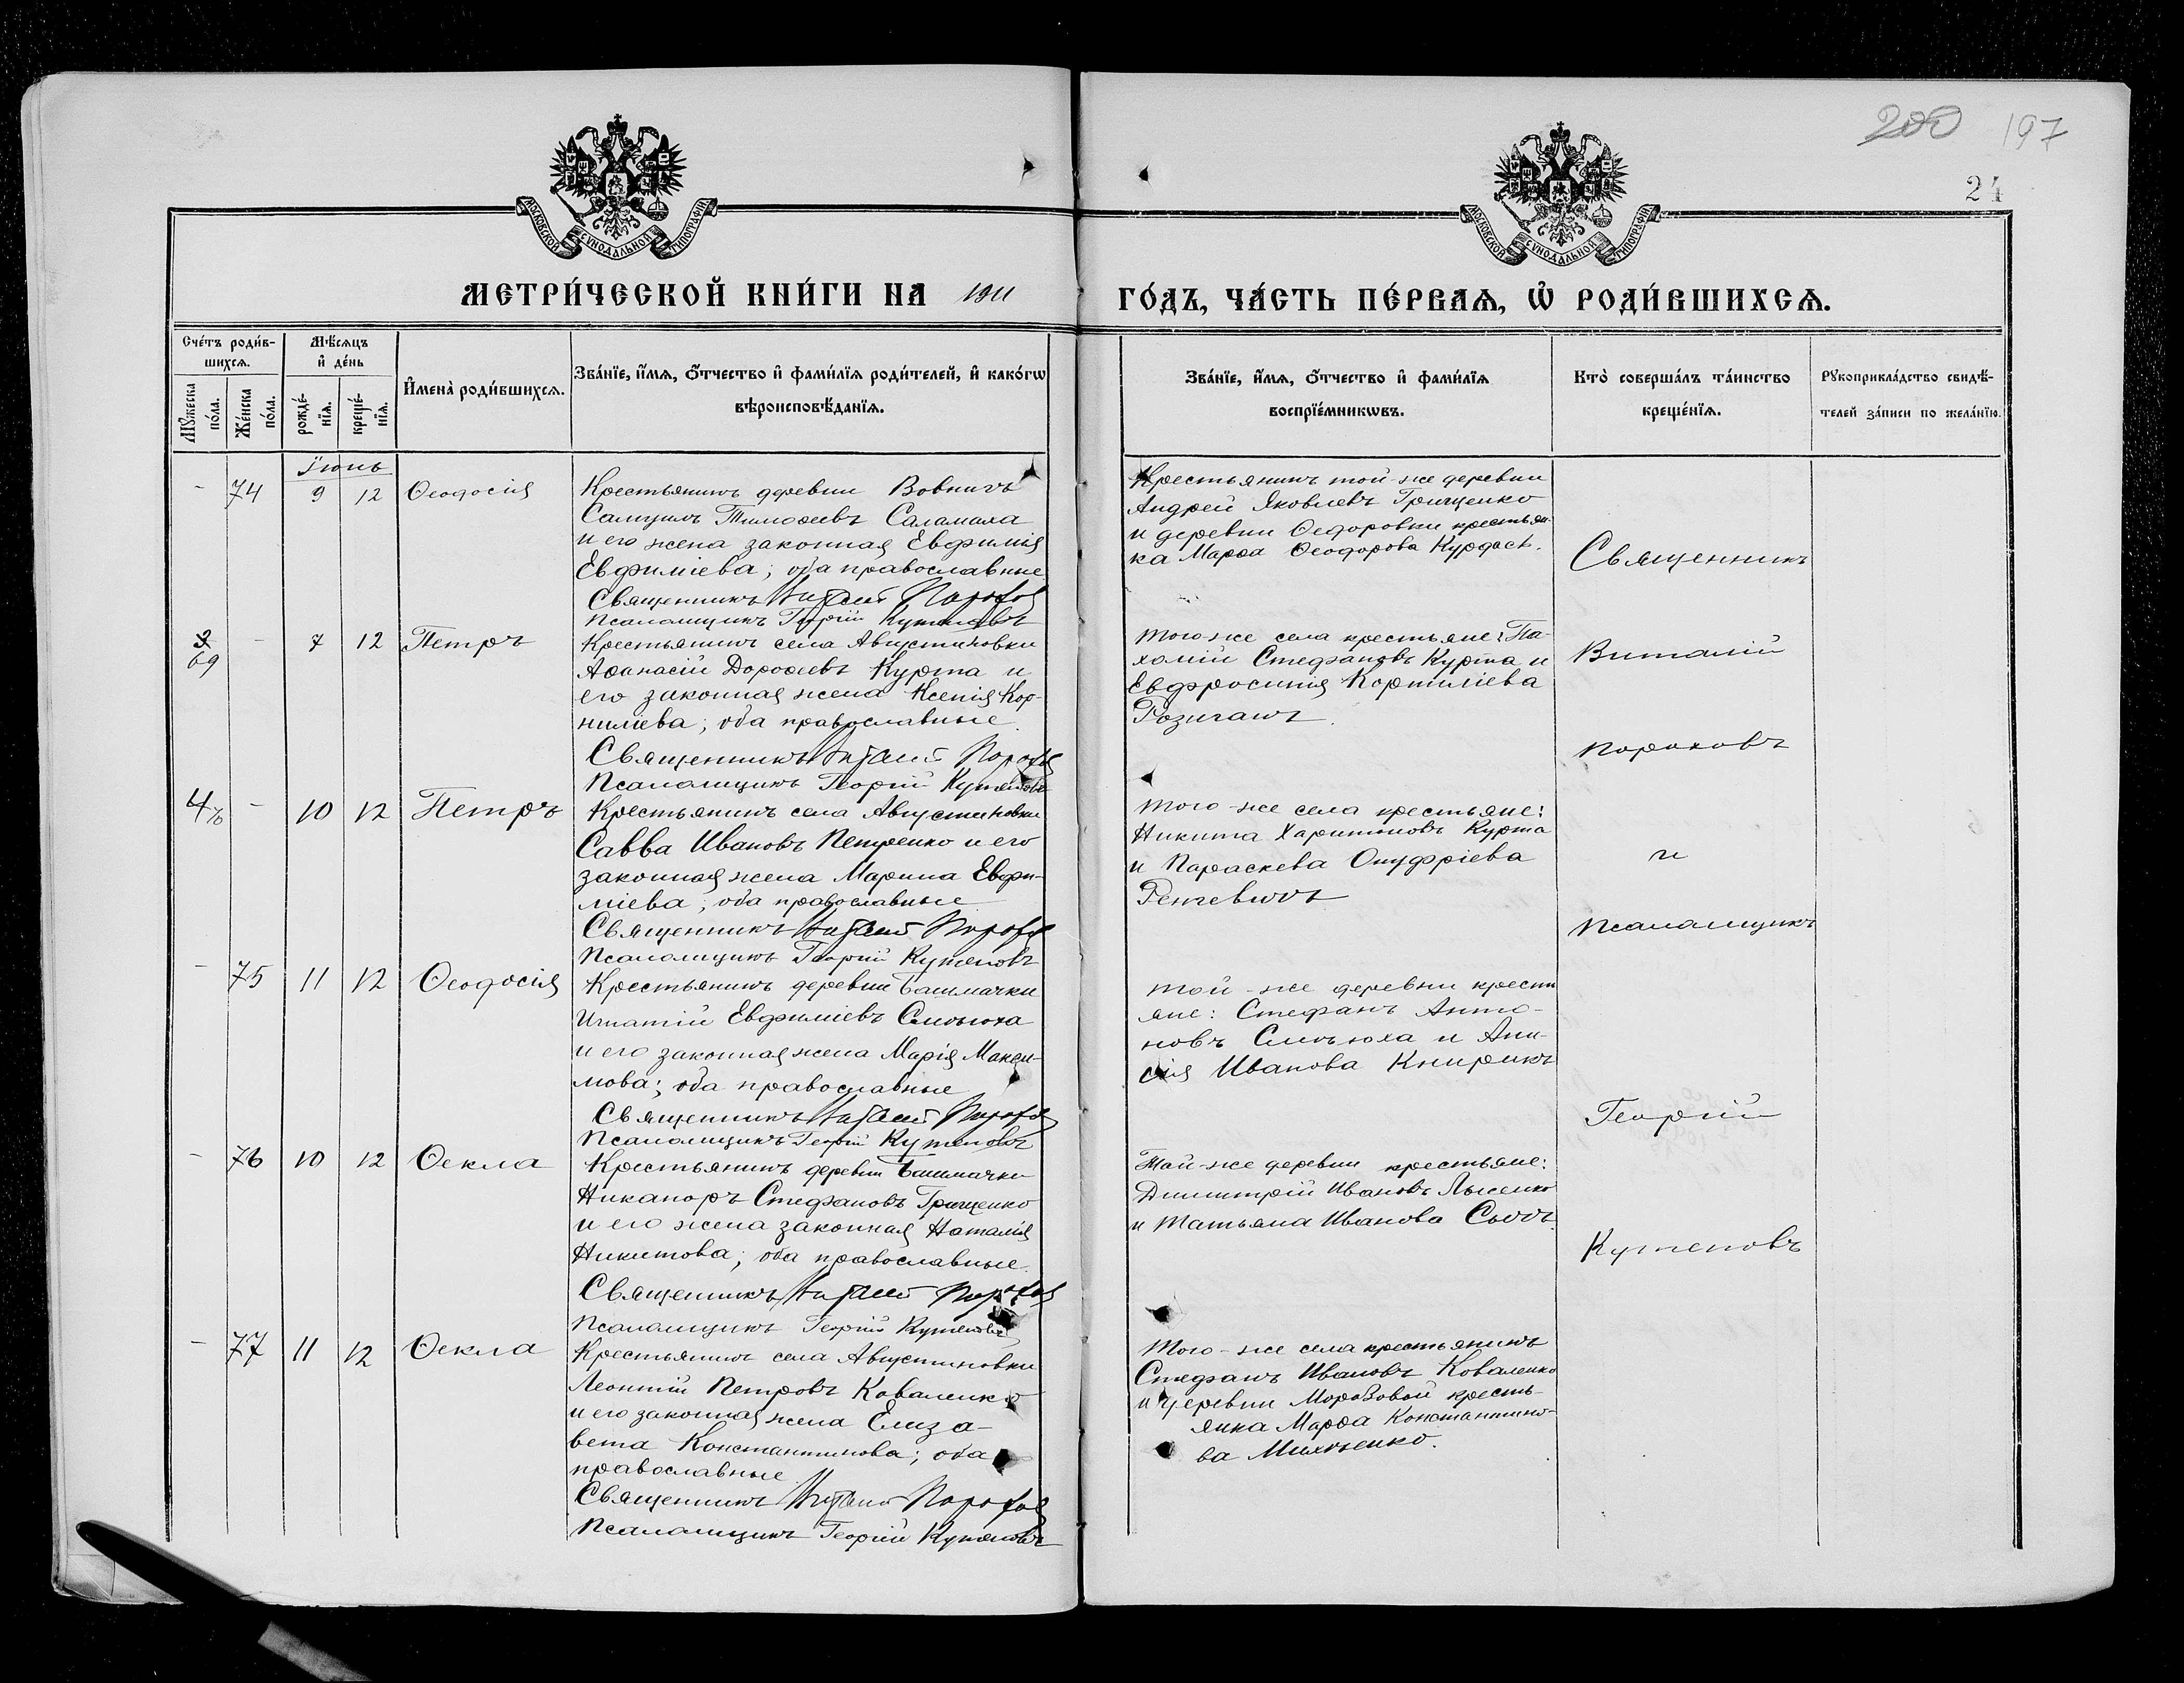 200 197
24
МОСКОВСКОЙ СѴНОДАЛЬНОЙ ТИПОГРАФІИ
МОСКОВСКОЙ СѴНОДАЛЬНОЙ ТИПОГРАФІИ
МЕТРИ́ЧЕСКОЙ КНИ́ГИ НА 1911
ГО́ДЪ, ЧА́СТЬ ПЕ́РВАѦ, Ѡ҆ РОДИ́ВШИХСѦ.
Сче́тъ роди́в-
шихсѧ.
Мꙋ́жеска по́ла.
Же́нска по́ла.
Мѣ́сѧцъ
и҆ де́нь
рожде́-нїѧ.
креще́-нїѧ.
И҆мена̀ роди́вшихсѧ.
Зва́нїе, и҆́мѧ, ѻ҆́тчество и҆ фами́лїѧ роди́телей, и҆ како́гѡ
вѣроисповѣ́данїѧ.
Зва́нїе, и҆́мѧ, ѻ҆́тчество и҆ фами́лїѧ
воспрїе́мникѡвъ.
Кто̀ соверша́лъ та́инство
креще́нїѧ.
Рꙋкоприкла́дство свидѣ́-
телей за́писи по жела́нїю.
Іюнь
- 74 9 12 Ѳеодосія
Крестьянинъ деревни Вовнигъ
Самуилъ Тимоѳеевъ Саламаха
и его жена законная Евфимія
Евфиміева; оба православные
Священникъ Виталій Пороховъ
Псаломщикъ Георгій Кутеповъ
Крестьянинъ той-же деревни
Андрей Яковлевъ Грищенко
и деревни Ѳедоровки крестьян-
ка Марѳа Ѳеодорова
Священникъ
69 - 7 12 Петръ
Крестьянинъ села Августиновки
Аѳанасій Дороѳеевъ Курта и
его законная жена Ксенія Кор-
ниліева; оба православные
Священникъ Виталій Пороховъ
Псаломщикъ Георгій Кутеповъ
Того-же села крестьяне: Па-
хомій Стефановъ Курта и
Евфросинія Корниліева
Виталій
Пороховъ
70 - 10 12 Петръ
Крестьянинъ села Августиновки
Савва Ивановъ Петренко и его
законная жена Марина Евфи-
міева; оба православные
Священникъ Виталій Пороховъ
Псаломщикъ Георгій Кутеповъ
Того-же села крестьяне:
Никита Харитоновъ Курта
и Параскева Онуфріева
и
Псаломщикъ
- 75 11 12 Ѳеодосія
Крестьянинъ деревни Башмачки
Игнатій Евфиміевъ
и его законная жена Марія Макси-
мова; оба православные
Священникъ Виталій Пороховъ
Псаломщикъ Георгій Кутеповъ
Той-же деревни крестья
яне: Стефанъ Анто-
новъ и Ани-
сія Иванова Книрикъ
Георгій
- 76 10 12 Ѳекла
Крестьянинъ деревни Башмачки
Никаноръ Стефановъ Грищенко
и его жена законная Наталія
Никитова; оба православные.
Священникъ Виталій Пороховъ
Псаломщикъ Георгій Кутеповъ
Той-же деревни крестьяне:
Димитрій Ивановъ Лысенко
и Татьяна Иванова
Кутеповъ
- 77 11 12 Ѳекла
Крестьянинъ села Августиновки
Леонтій Петровъ Коваленко
и его законная жена Елиза-
вета Константинова; оба
православные
Священникъ Виталій Пороховъ
Псаломщикъ Георгій Кутеповъ
Того-же села крестьянинъ
Стефанъ Ивановъ Коваленко
и деревни Морозовой кресть-
янка Марѳа Константино-
ва